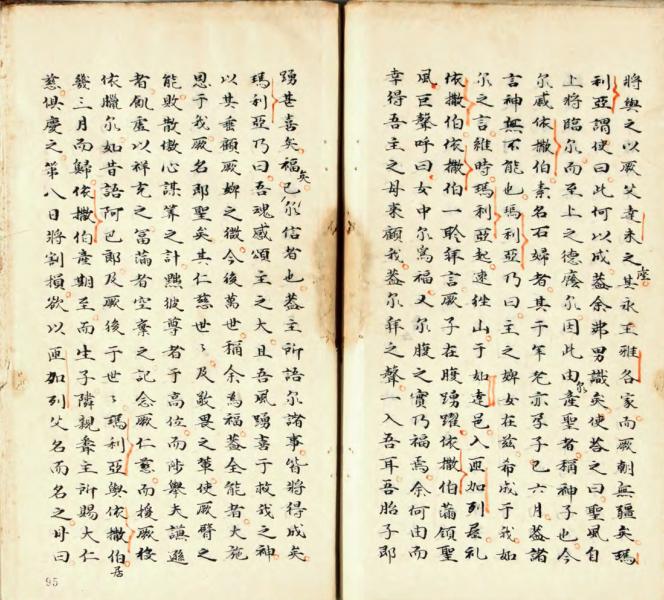 將與之以厥父達未之座其永王雅各家而厥朝無疆矣瑪
利亞謂使曰此何以成蓋余弗男識矣使答之曰聖風自
上將臨尔而至上之德廕尔因此由尔產聖者稱神子也今
尔戚依撒伯素名石婦者其于年老亦孕子已六月蓋諸
言神無不能也瑪利亞乃曰主之婢女在兹希成于我如
尔之言維時瑪利亞起速徃山于如達邑入匝加列屋礼
依撒伯依撒伯一聆拜言厥子在腹踴躍依撒伯滿領聖
風巨聲呼曰女中尔為福又尔腹之實乃福焉余何由而
幸得吾主之母来顧我蓋尔拜之聲一入吾耳吾胎子即
踴甚喜矣福矣已尔信者也蓋主所語尔諸事皆將得成矣
瑪利亞乃曰吾魂感頌主之大且吾風踴喜于救我之神
以其垂顧厥婢之微今後萬世稱余為福蓋全能者大施
恩于我厥名即聖矣其仁慈世〻及敬畏之輩使厥臂之
能敗散傲心謀筭之計黜彼尊者于高位而陟舉夫謙遜
者飢虛以祥充之冨蓄者空棄之記念厥仁慈而援厥役
依臘尔如昔語阿巴郎及厥後于世〻瑪利亞與依撒伯居
幾三月而歸依撒伯產期至而生子隣親聞主所賜大仁
慈俱慶之第八日將割損欲以匝加列父名而名之母曰
95